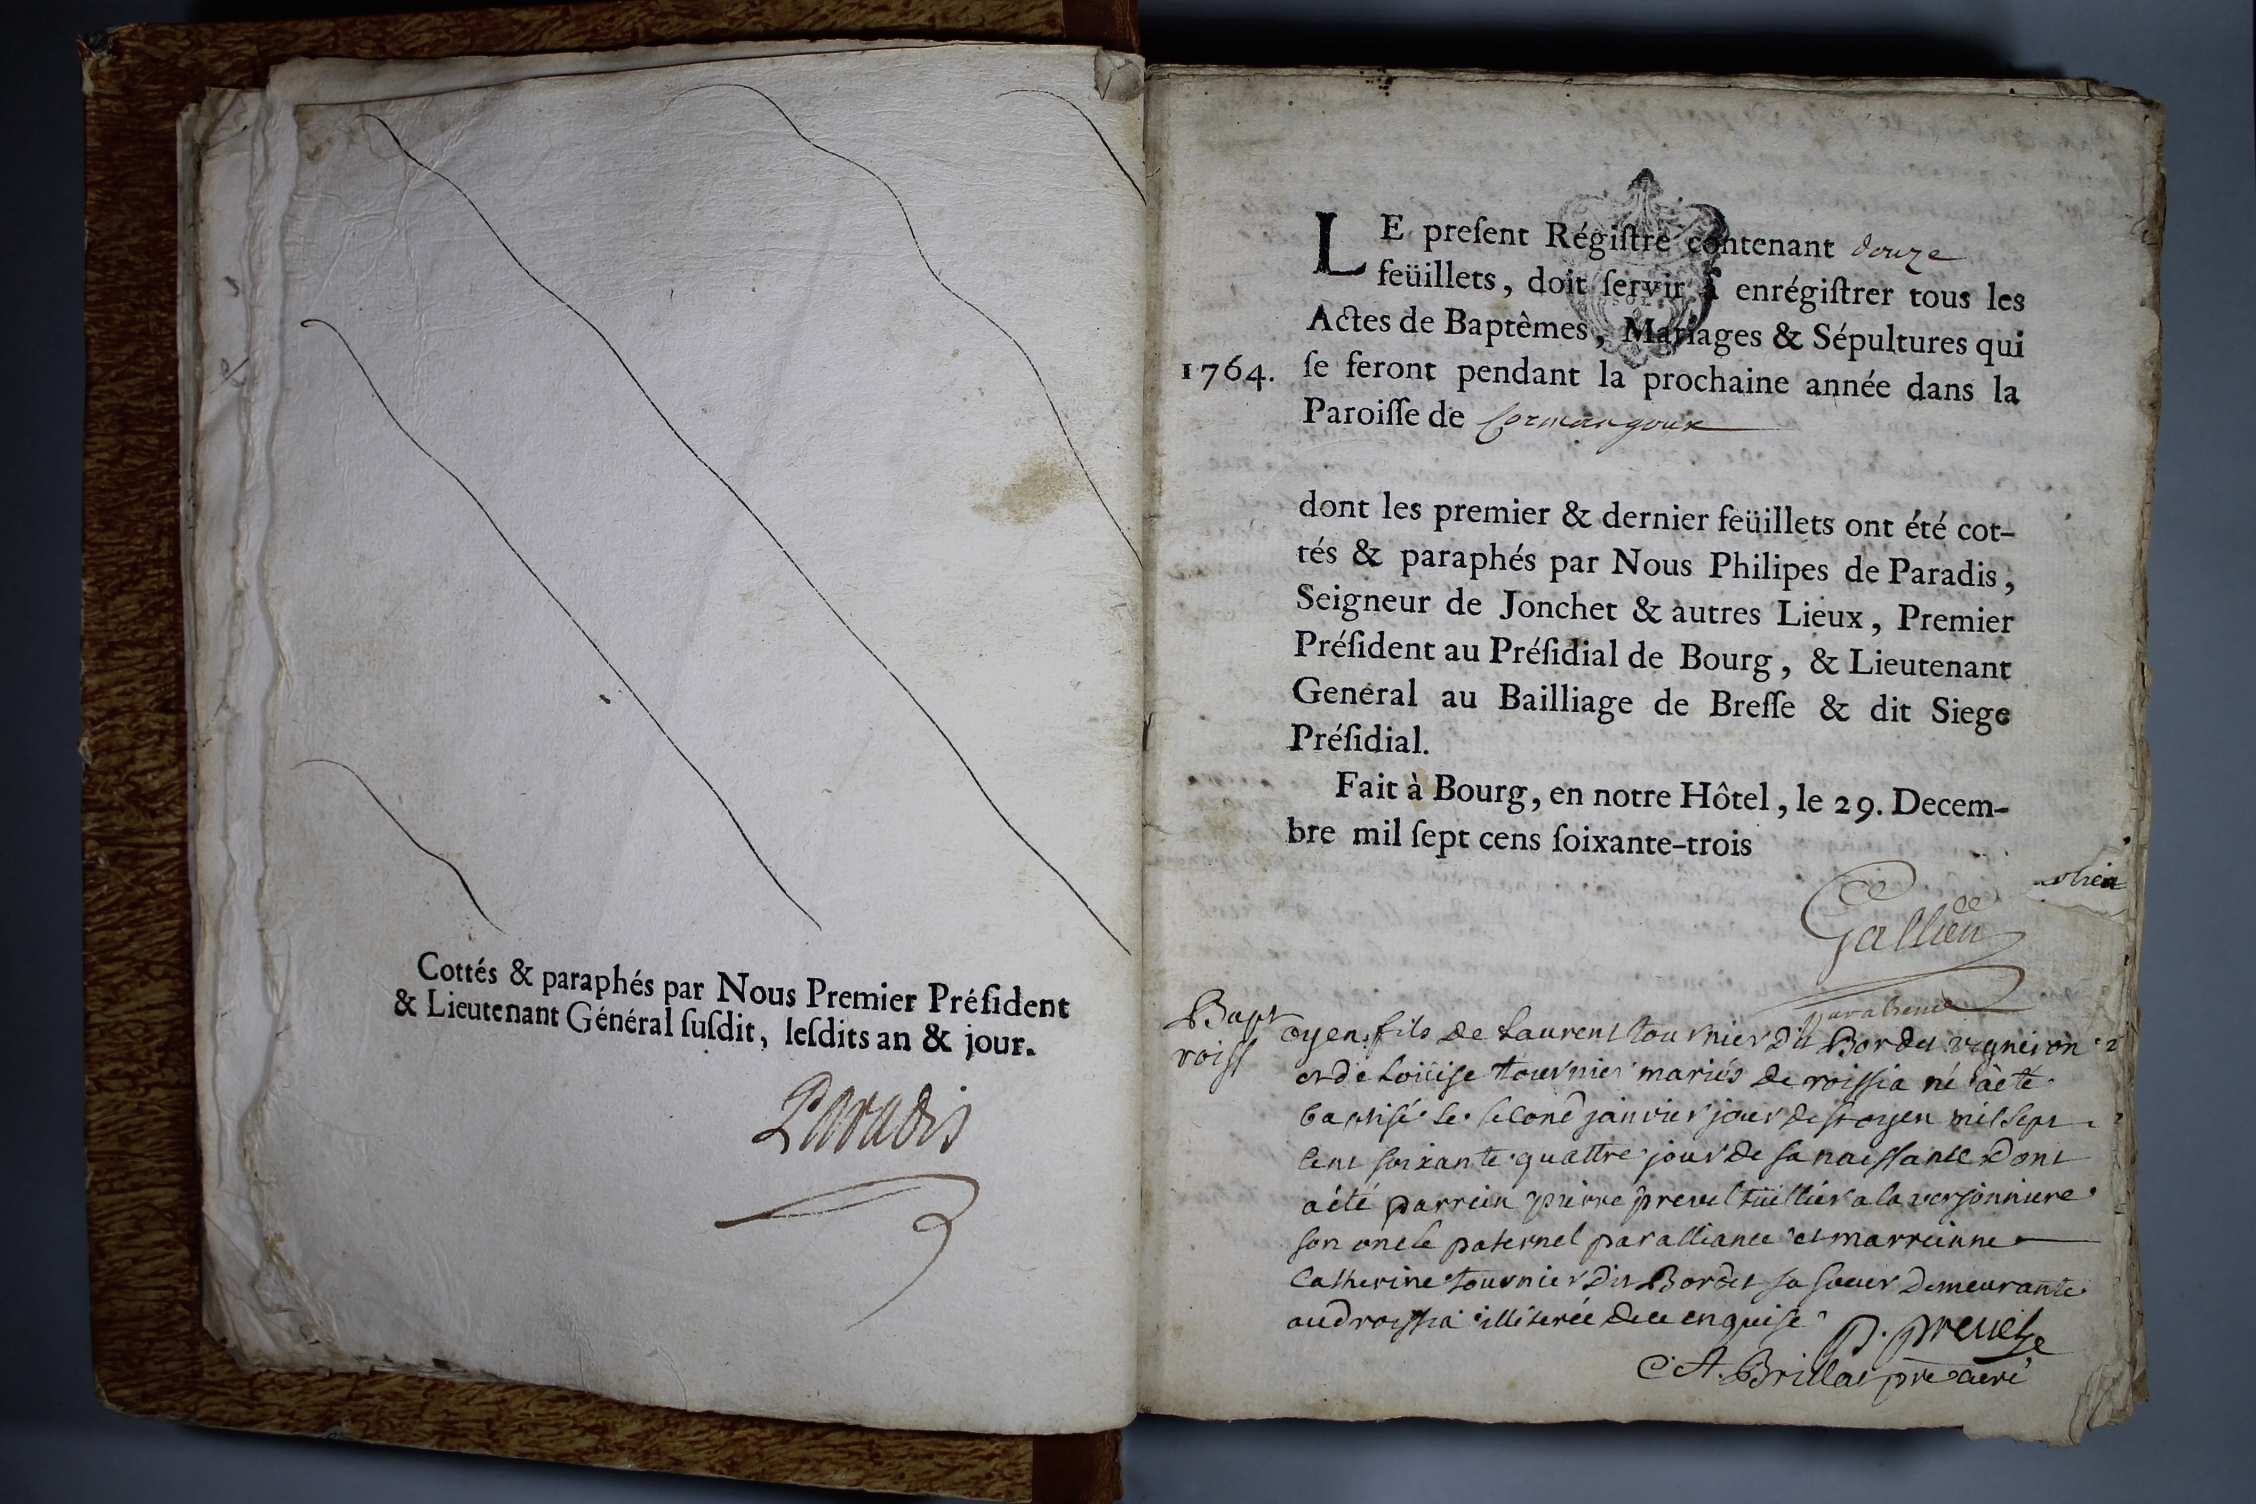 Cottés & paraphés par Nous Premier Préſident
& Lieutenant Général ſuſdit, leſdits an & jour.
Paradis
LE preſent Régiſtre contenant douze
feüillets, doit ſervir à enrégiſtrer tous les
Actes de Baptêmes, Mariages & Sépultures qui
1764. ſe feront pendant la prochaine année dans la
Paroiſſe de Cormangoux
dont les premier & dernier feüillets ont été cot-
tés & paraphés par Nous Philipes de Paradis,
Seigneur de Jonchet & autres Lieux, Premier
Préſident au Préſidial de Bourg, & Lieutenant
General au Bailliage de Breſſe & dit Siege
Préſidial.
Fait à Bourg, en notre Hôtel, le 29. Decem-
bre mil ſept cens ſoixante-trois
Gallien
Bapt oyen fils de Laurent tournier dit Bordet vigneron
roiss et de Loüise tournier mariés de roissia né a eté
baptisé le second janvier jour de st oyen mil sept
cent soixante quattre jour de sa naissance dont
a été parrein pierre prevel tüillier a la versonniere
son oncle paternel par alliance et marreinne
Catherine tournier dit Bordet sa soeur demeurante
aud roissia illiterée de ce enquise
P. prevel
C A. Brillat pre curé